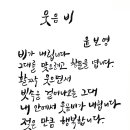 웃은 비
윤보영
비가 내립니다
그대를 맞으려고 창문을 엽니다
활짝 웃으면서
빗속을 걸어나오는 그대
내 안에서 웃은비가 내립니다
젖은 만큼 행복합니다